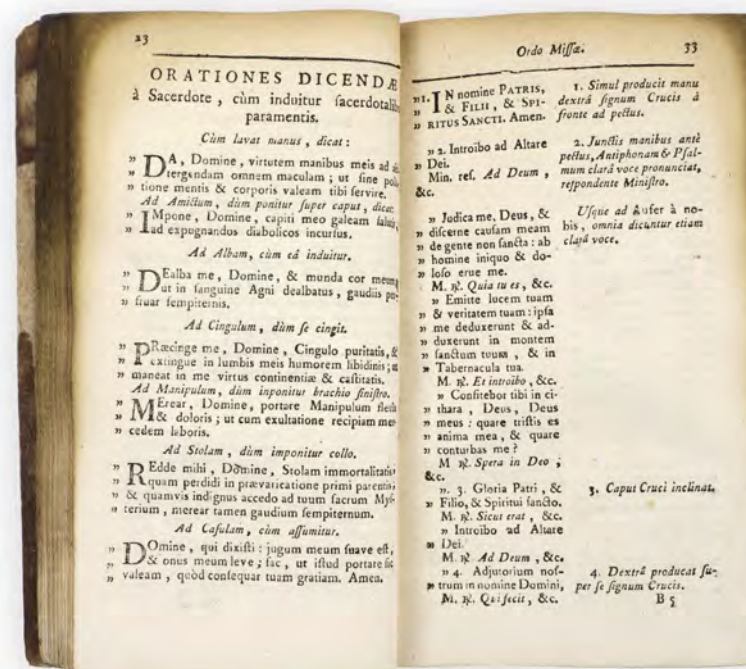 23
ORATIONES DICENDÆ
à Sacerdote, cùm induitur sacerdotalibus
paramentis.
Cùm lavat manus, dicat:
» DA, Domine, virtutem manibus meis ad abs-
» tergendam omnem maculam; ut sine pollu-
» tione mentis & corporis valeam tibi servire.
Ad Amictum, dùm ponitur super caput, dicat.
» IMpone, Domine, capiti meo galeam salutis,
» ad expugnandos diabolicos incursus.
Ad Albam, cùm eâ induitur.
» DEalba me, Domine, & munda cor meum;
» ut in sanguine Agni dealbatus, gaudiis per-
» fruar sempiternis.
Ad Cingulum, dùm se cingit.
» PRæcinge me, Domine, Cingulo puritatis, &
» extingue in lumbis meis humorem libidinis; ut
» maneat in me virtus continentiæ & castitatis.
Ad Manipulum, dùm inponitur brachio sinistro.
» MErear, Domine, portare Manipulum fletûs
» & doloris; ut cum exultatione recipiam mer-
» cedem laboris.
Ad Stolam, dùm imponitur collo.
» REdde mihi, Domine, Stolam immortalitatis,
» quam perdidi in prævaricatione primi parentis;
» & quamvis indignus accedo ad tuum sacrum Mys-
» terium, merear tamen gaudium sempiternum.
Ad Casulam, cùm assumitur.
» DOmine, qui dixisti: jugum meum suave est,
» & onus meum leve; fac, ut istud portare sic
» valeam, quòd consequar tuam gratiam. Amen.
Ordo Missæ. 33
»1. IN nomine PATRIS,
» & FILII, & SPI-
» RITUS SANCTI. Amen.
» 2. Introibo ad Altare
» Dei.
Min. res. Ad Deum,
&c.
» Judica me, Deus, &
» discerne causam meam
» de gente non sancta: ab
» homine iniquo & do-
» loso erue me.
M. ℟. Quia tu es, &c.
» Emitte lucem tuam
» & veritatem tuam: ipsa
» me deduxerunt & ad-
» duxerunt in montem
» sanctum tuum, & in
» Tabernacula tua.
M. ℟. Et introibo, &c.
» Confitebor tibi in ci-
» thara, Deus, Deus
» meus: quare tristis es
» anima mea, & quare
» conturbas me?
M ℟. Spera in Deo;
&c.
». 3. Gloria Patri, &
» Filio, & Spiritui sancto.
M. ℟. Sicut erat, &c.
» Introibo ad Altare
» Dei.
M. ℟. Ad Deum, &c.
» 4. Adjutorium nos-
» trum in nomine Domini,
M. ℟. Qui fecit, &c.
1. Simul producit manu
dextrâ signum Crucis à
fronte ad pectus.
2. Junctis manibus antè
pectus, Antiphonam & Psal-
mum clarâ voce pronunciat,
respondente Ministro.
Usque ad Aufer à no-
bis, omnia dicuntur etiam
clarâ voce.
3. Caput Cruci inclinat.
4. Dextrâ producat su-
per se signum Crucis.
B 5